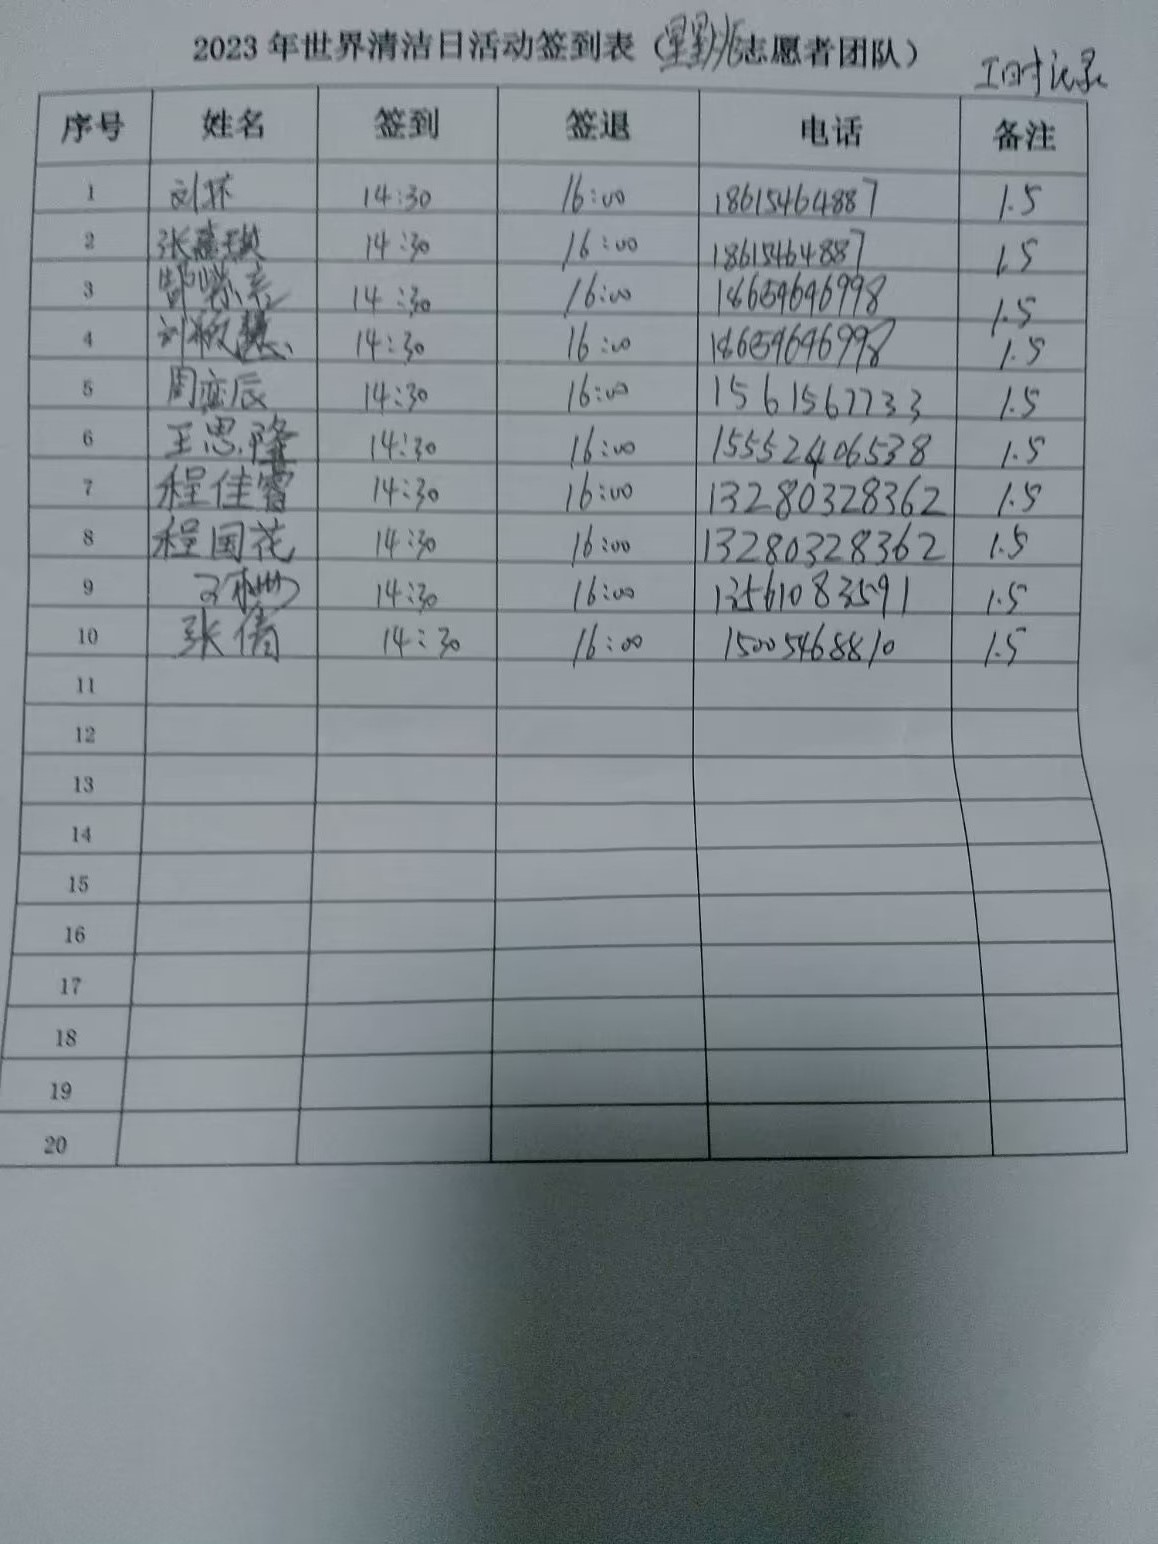 2023年世界清洁日活动签到表（志愿者团队）
工时记录
序号 姓名 签到 签退 电话 备注
1 刘环 14:30 16:00 18615464887 1.5
2 张嘉琪 14:30 16:00 18615464887 1.5
3 14:30 16:00 18659696998 1.5
4 刘 14:30 16:00 18659696998 1.5
5 周奕辰 14:30 16:00 1561567733 1.5
6 王思隆 14:30 16:00 15552406538 1.5
7 程佳睿 14:30 16:00 13280328362 1.5
8 程国花 14:30 16:00 13280328362 1.5
9 14:30 16:00 13561083591 1.5
10 张倩 14:30 16:00 15005468810 1.5
11
12
13
14
15
16
17
18
19
20